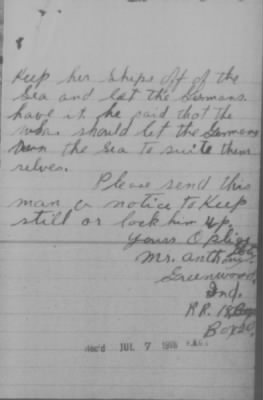 Keep her Ships off of the
Sea and let the Germans.
have it. he said that the
should let the Germans
the Sea to suite them
selves.
Please send this
man a notice to Keep
still or lock him up.
Yours
Mr. Anthony
Greenwood,
Ind.
R.R. 18
Box
Rec'd JUL 7